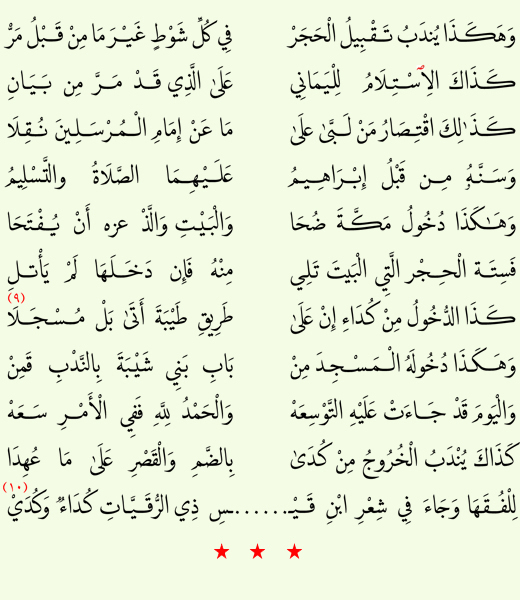 وَهَكَذَا يُندَبُ تَقْبِيلُ الْحَجَرْ فِي كُلِّ شَوْطٍ غَيْرَ مَا مِنْ قَبْلُ مَرّْ
كَذَاكَ الِاسْتِلَامُ لِلْيَمَانِي عَلَى الَّذِي قَدْ مَرَّ مِن بَيَانِ
كَذَلِكَ اقْتِصَارُ مَنْ لَبَّى عَلَى مَا عَنْ إِمَامِ الْمُرْسَلِينَ نُقِلَا
وَسَنَّهُ مِن قَبْلُ إِبْرَاهِيمُ عَلَيْهِمَا الصَّلَاةُ والتَّسْلِيمُ
وَهَكَذَا دُخُولُ مَكَّةَ ضُحَا وَالْبَيْتِ وَالَّذْ عزه أَنْ يُفْتَحَا
فَسِتَة الْحِجْر الَّتِي الْبَيْتَ تَلِي مِنْهُ فَإِن دَخَلَهَا لَمْ يَأْتلِ
(٩)
كَذَا الدُّخُولُ مِنْ كُدَاءِ إِنْ عَلَى طَرِيقِ طَيْبَةَ أَتَى بَلْ مُسْجَلَا
وَهَكَذَا دُخُولَهُ الْمَسْجِدَ مِنْ بَابِ بَنِي شَيْبَةَ بِالنَّدْبِ قَمِنْ
وَالْيَومَ قَدْ جَاءَتْ عَلَيْهِ التَّوْسِعَهْ وَالْحَمْدُ لِلَّهِ فَفِي الْأَمْرِ سَعَهْ
كَذَاكَ يُنْدَبُ الْخُرُوجُ مِنْ كُدَى بِالضَّمِّ وَالْقَصْرِ عَلَى مَا عُهِدَا
(١٠)
لِلْفُقَهَا وَجَاءَ فِي شِعْرِ ابْنِ قَيْـ......ـسِ ذِي الرُّقَيَّاتِ كُدَاءٌ وَكُدَيّْ
★ ★ ★